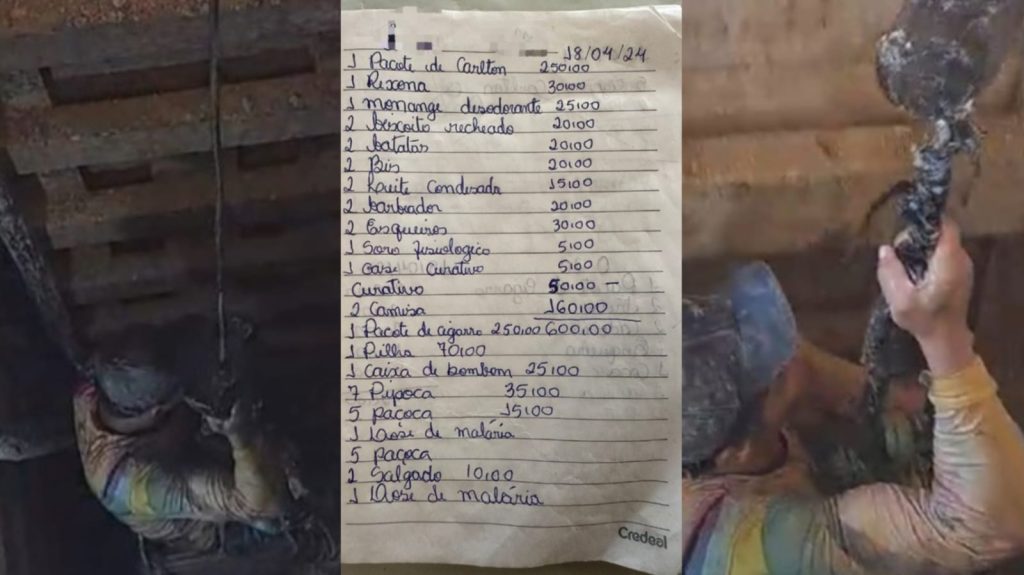 18/04/24
1 Pacote de Carlton 250,00
1 Rexona 30,00
1 monange desodorante 25,00
2 biscoito recheado 20,00
2 batatas 20,00
2 Bis 20,00
2 Leite Condisado 15,00
2 barbeador 20,00
2 Esqueiros 30,00
1 Soro fisiologico 5,00
1 Gase Curativo 5,00
Curativo 50,00 —
2 Camisa 160,00
1 Pacote de cigarro 250,00 600,00
1 Pilha 70,00
1 Caixa de bombom 25,00
7 Pipoca 35,00
5 paçoca 15,00
1 Dose de malária
5 paçoca
2 Salgado 10,00
1 Dose de malária
Credeal